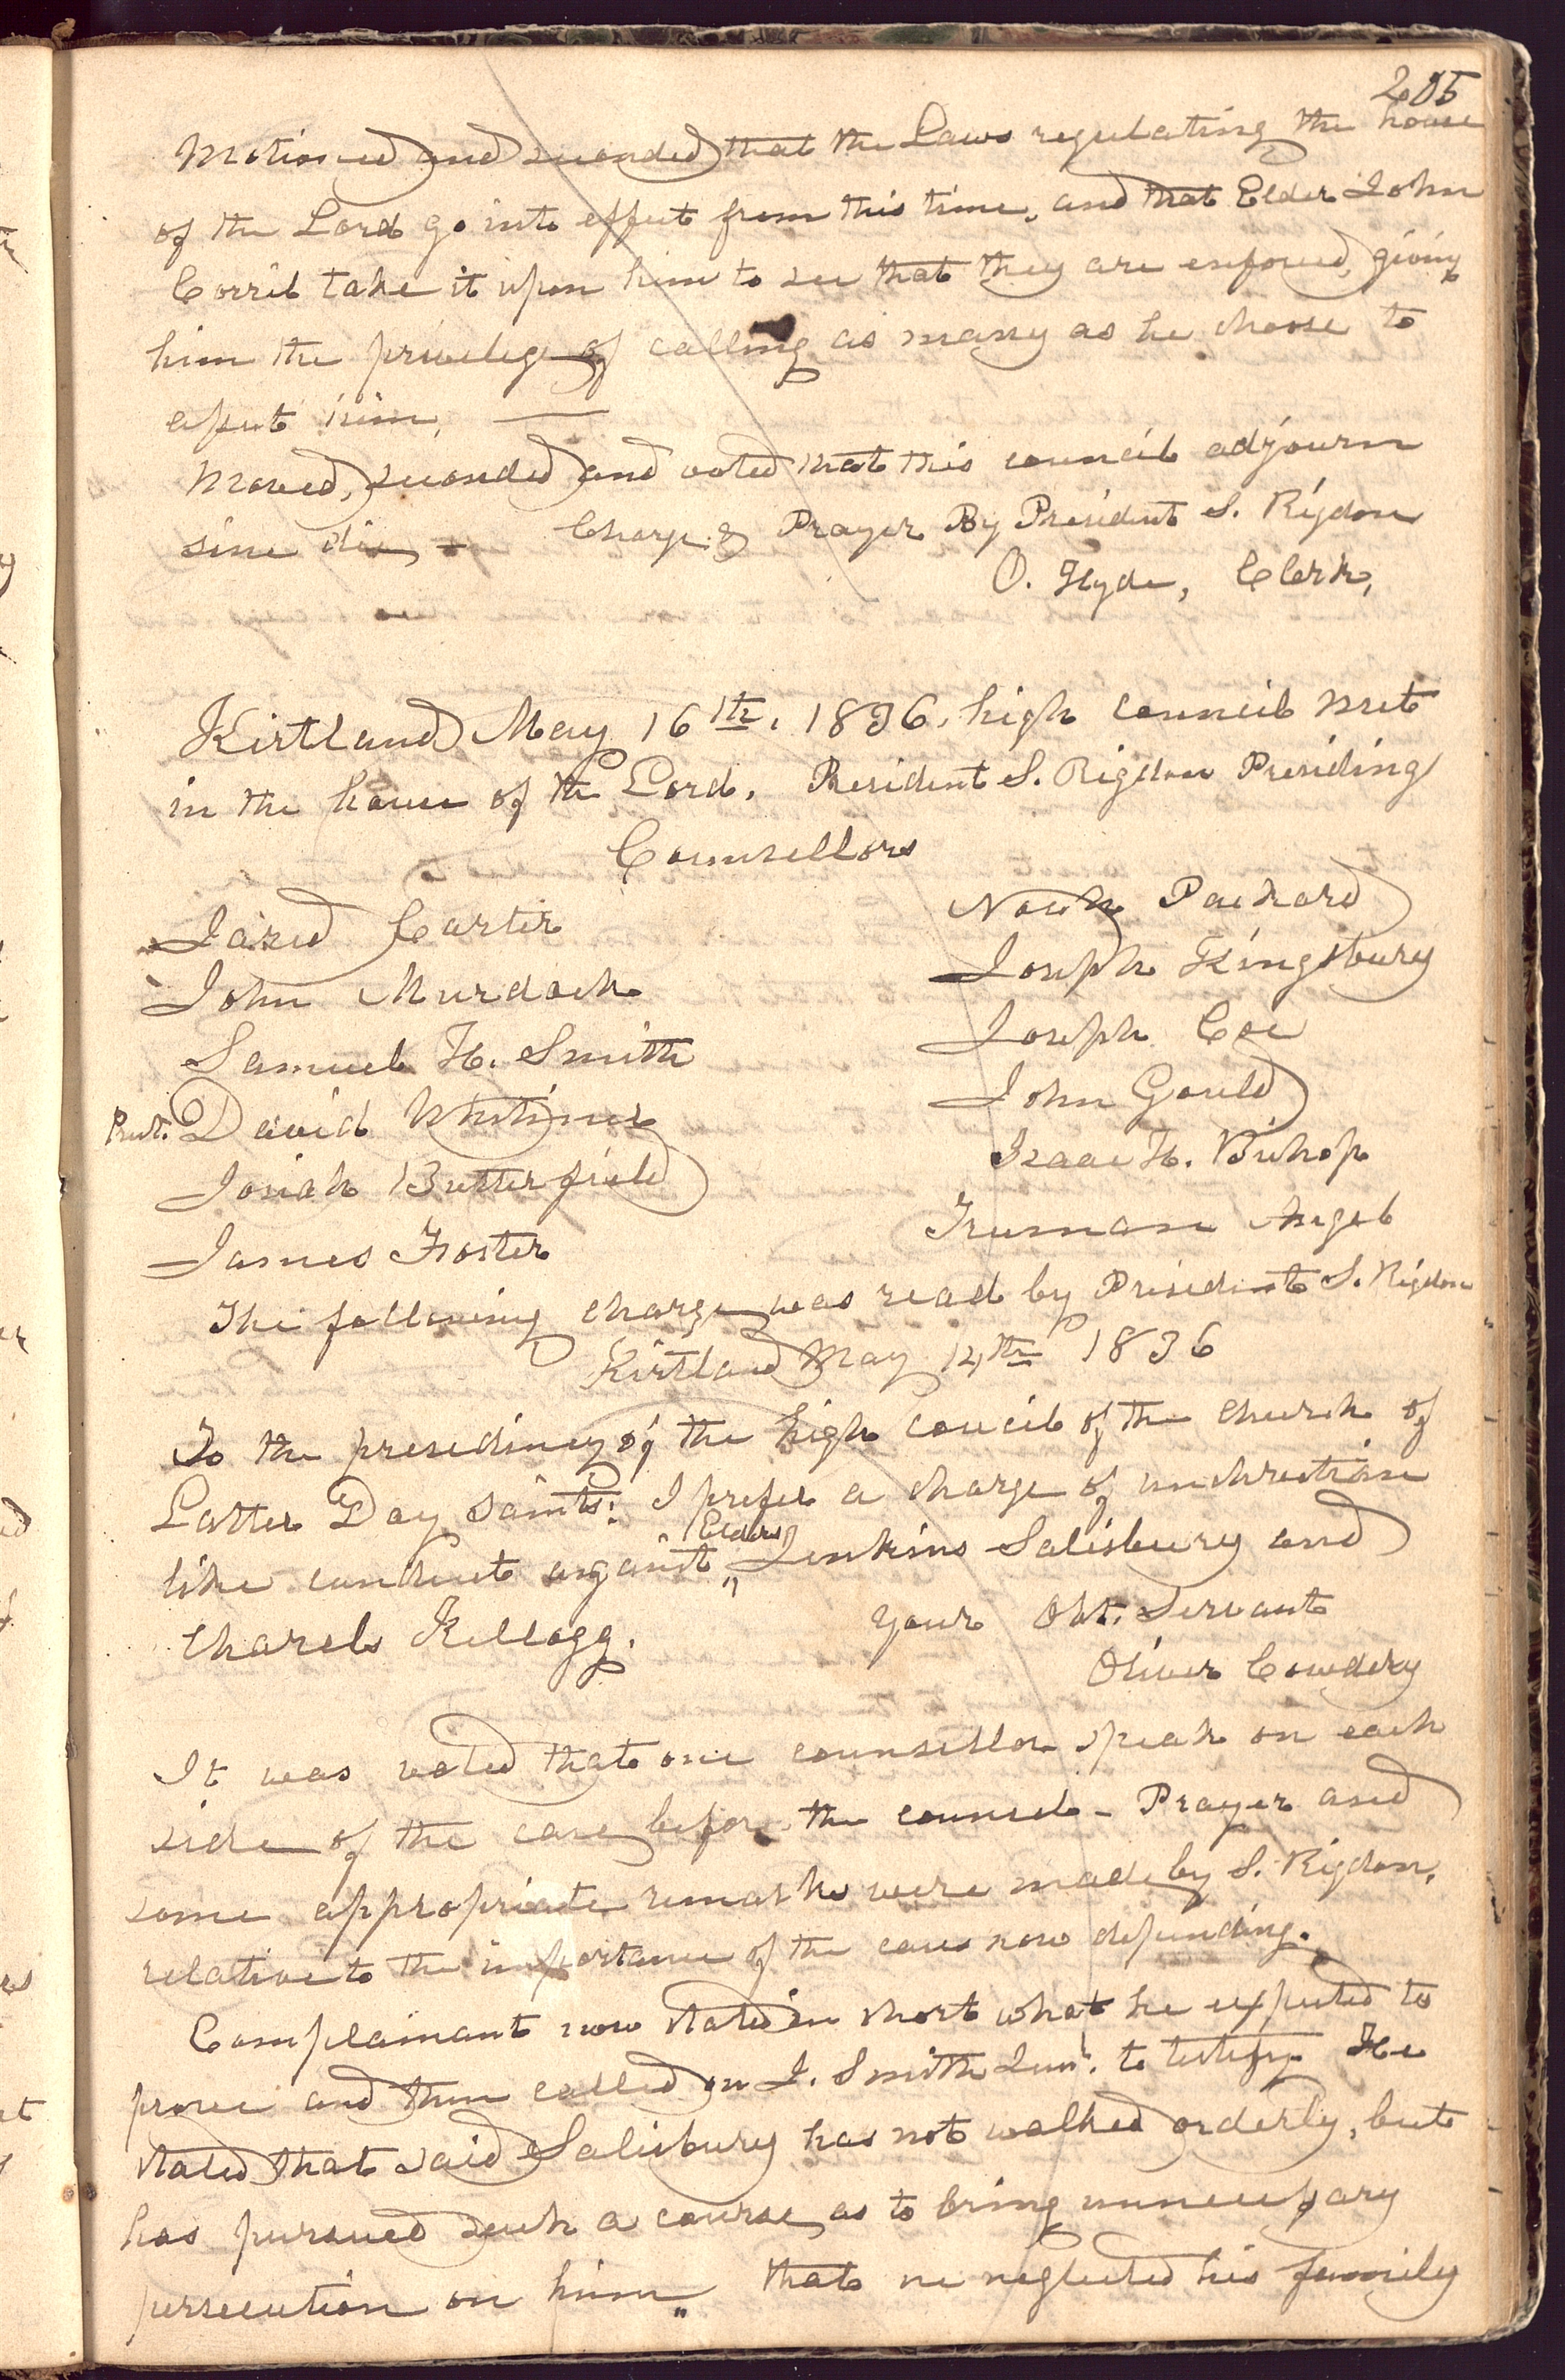 205
Motioned and seconded that the Laws regulating the house
of the Lord go into effect from this time, and that Elder John
Corril take it upon him to see that they are enforced, giving
him the privelege of calling as many as he choose to
assist him,
Moved, seconded and voted that this council adjourn
sine die, - Charge & Prayer By President S. Rigdon
O. Hyde, Clerk,
Kirtland May 16th, 1836, high council met
in the house of the Lord. President S. Rigdon Presiding
Counsellors
Jared Carter
John Murdock
Samuel H. Smith
Prest. David Whitimer
Josiah Butterfield
James Foster
Noah Packard
Joseph Kingsbury
Joseph Coe
John Gould
Isaac H. Bishop
Truman Angel
The following charge was read by President S. Rigdon
Kirtland May 14th 1836
To the presedincy of the high Coucil of the church of
Latter Day Saints: I prefer a charge of unchristian
like conduct against " Elders Jenkins Salisbury and
Charels Kellogg.
Your Obt. Servant
Oliver Cowdery
It was voted that one counsellor speak on each
side of the case before the council - Prayer and
some appropriate remarks were made by S. Rigdon,
relative to the importance of the cases now depending.
Complainant now stated in short what he expected to
prove and then called on J. Smith Jun. to testify. He
stated that said Salisbury has not walked orderly, but
has pursued such a course, as to bring unnecessary
persecution on him " that he neglected his family